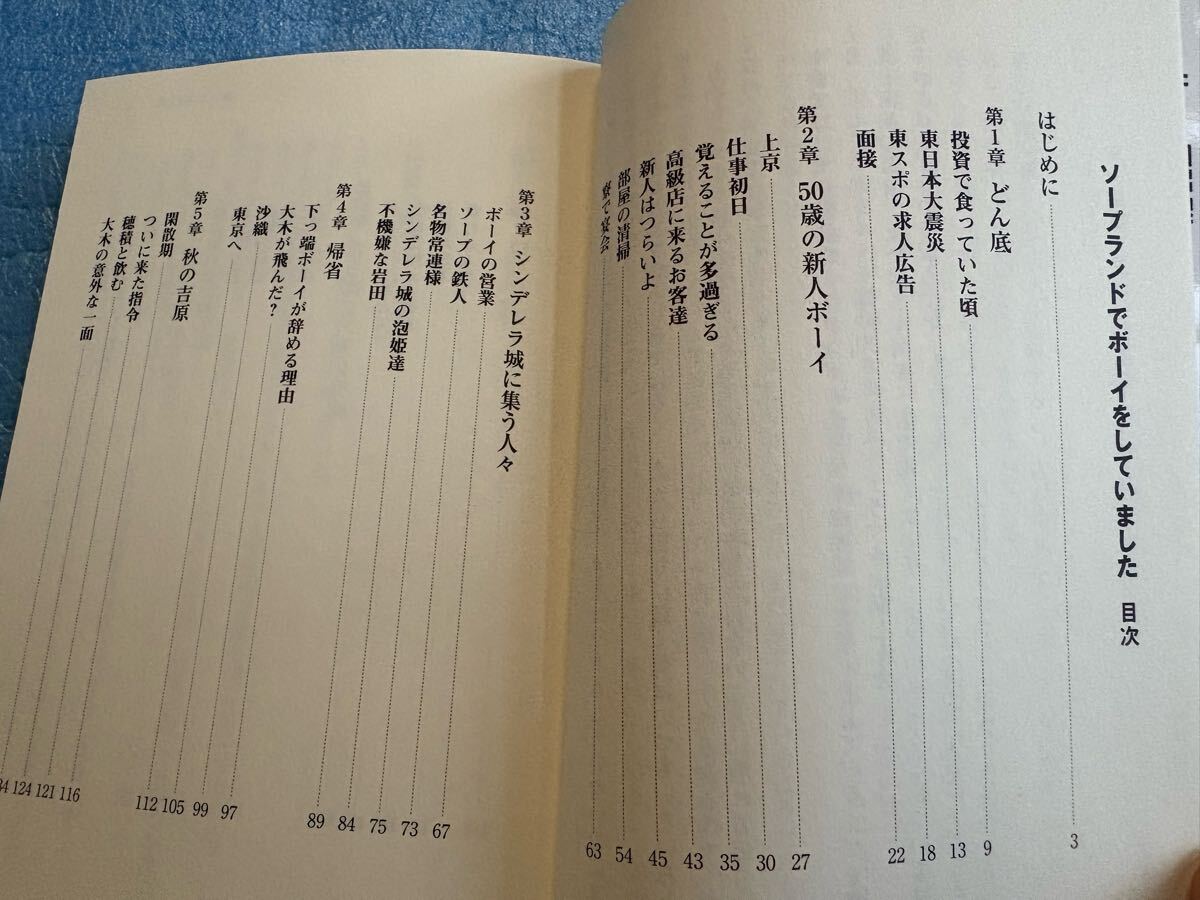 ソープランドでボーイをしていました 目次
はじめに 3
第1章 どん底
投資で食っていた頃 9
東日本大震災 13
東スポの求人広告 18
面接 22
第2章 50歳の新人ボーイ
上京 27
仕事初日 30
覚えることが多過ぎる 35
高級店に来るお客達 43
新人はつらいよ 45
部屋の清掃 54
寮で宴会 63
第3章 シンデレラ城に集う人々
ボーイの営業 67
ソープの鉄人 73
名物常連様 75
シンデレラ城の泡姫達 84
不機嫌な岩田 89
第4章 帰省
下っ端ボーイが辞める理由 97
大木が飛んだ？ 99
沙織 105
東京へ 112
第5章 秋の吉原
閑散期 116
ついに来た指令 121
穂積と飲む 124
大木の意外な一面 34